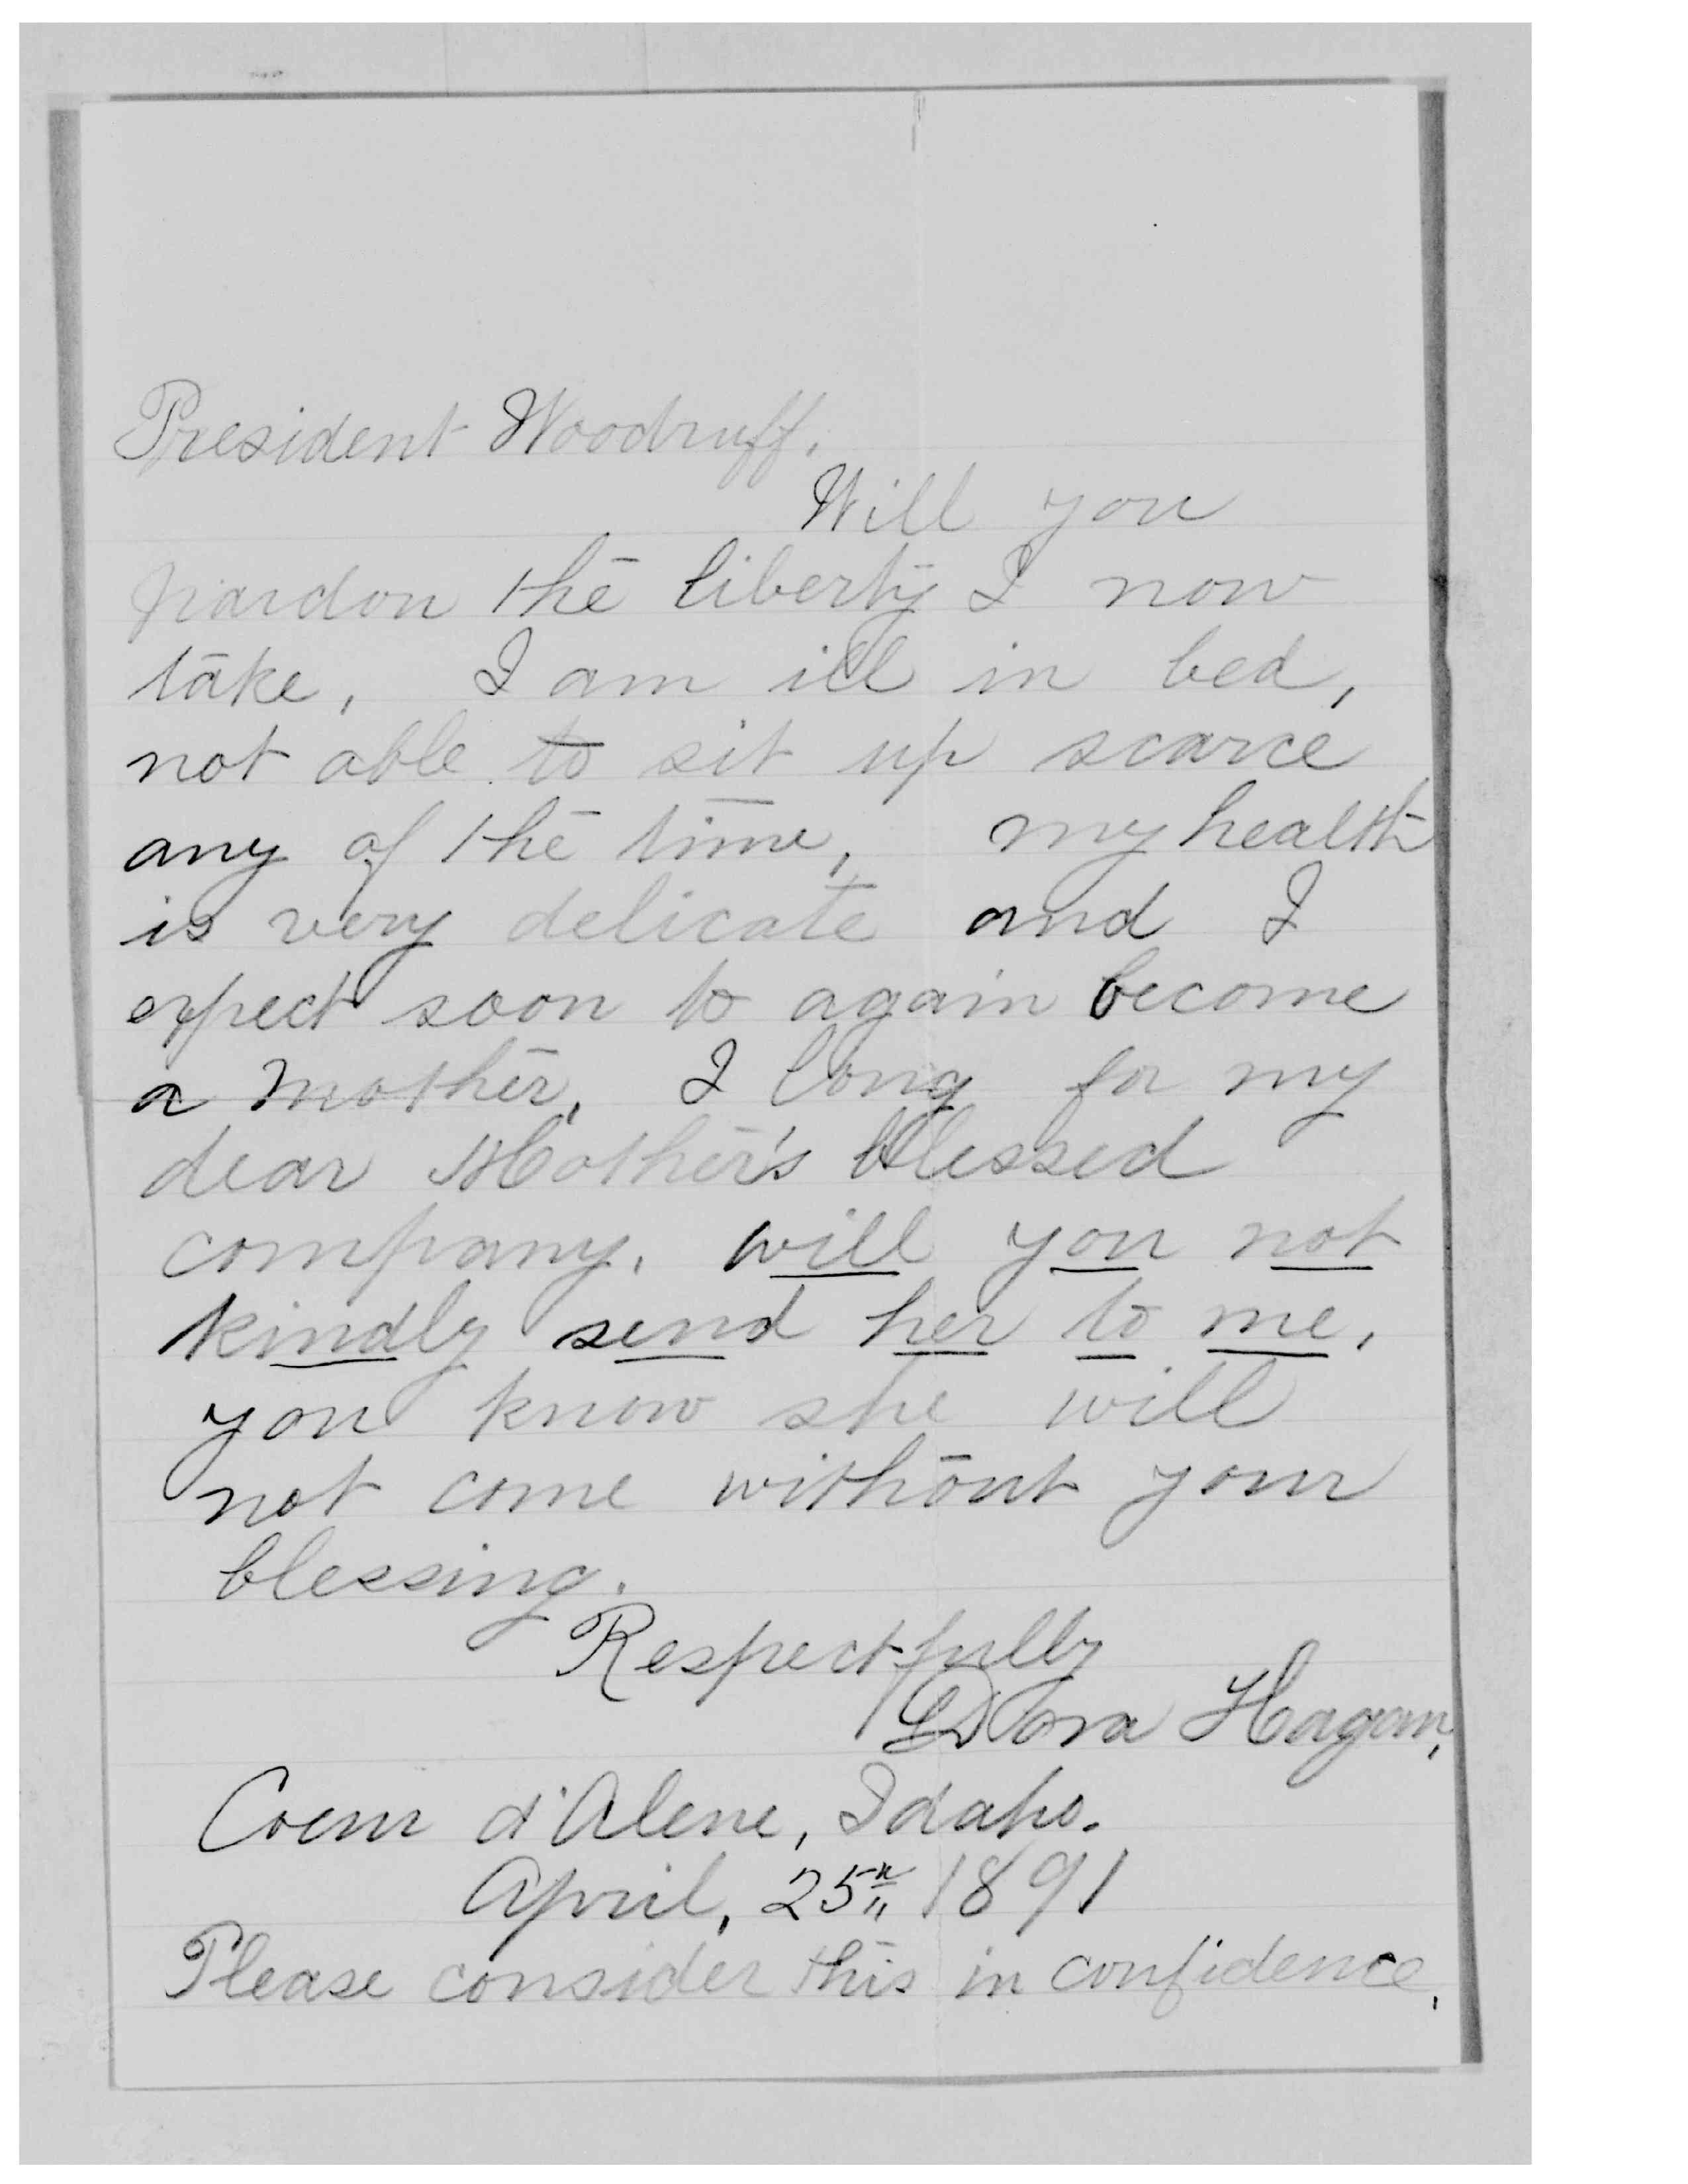 President Woodruff.
Will you
pardon the liberty I now
take, I am ill in bed,
not able to sit up scarce
any of the time, my health
is very delicate and I
expect soon to again become
a mother, I long for my
dear Mother's blessed
company. will you not
kindly send her to me,
you know she will
not come without your
blessing.
Respectfully
Dora Hagan,
Coeur d'Alene, Idaho.
April, 25th 1891
Please consider this in confidence,